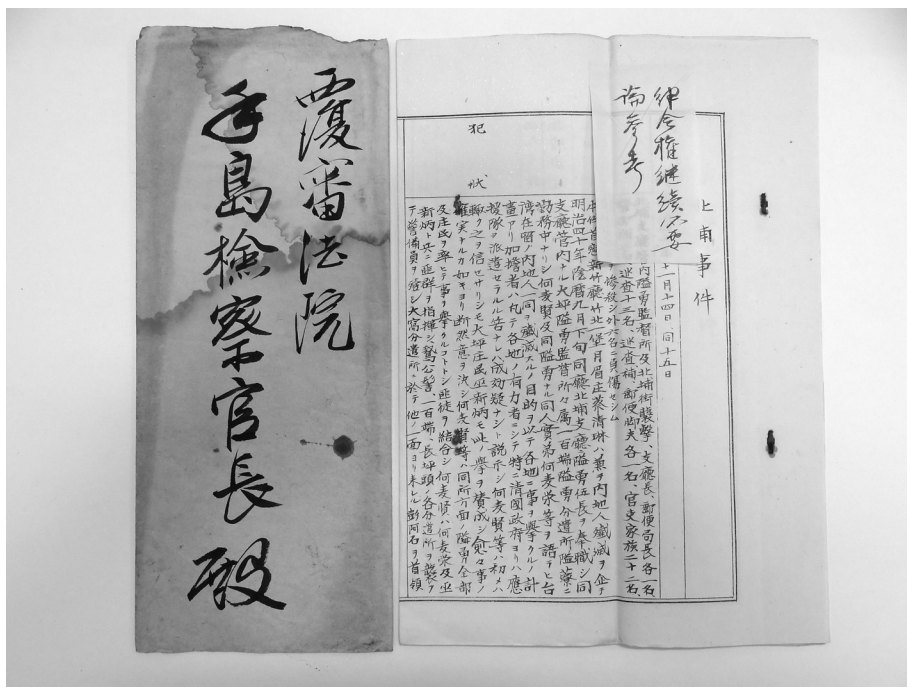 覆審法院
手島檢察官長 殿
律令權継続不要
論参考
北埔事件
十一月十四日、同十五日
内隘勇監督所及北埔街襲撃、支廳長、郵便局長各一名
巡査十三名、巡査補、郵便脚夫各一名、官吏家族二十二名、
惨殺シ外六名ニ負傷セシム
犯 状
本件首魁新竹廳竹北一堡月眉庄蔡清琳ハ兼ヲ内地人殲滅ヲ企テ
明治四十年陰暦九月下旬同廳北埔支廳隘勇伍長ヲ奉職シ同
支廳管内ナル大坪隘勇監督所々属一百端隘勇分遣所隘藔ニ
勤務中ナリシ何麦賢及同隘勇ナル同人實弟何麦榮等ヲ語ラヒ台
湾在留ノ内地人一同ヲ殲滅スルノ目的ヲ以テ各地ニ事ヲ擧クルノ計
畫アリ加擔者ハ凡テ各地ノ有力者ニシテ特ニ清國政府ヨリハ應
援隊ヲ派遣セラル告ナレハ成効疑ナシト説示シ何麦賢等ハ初メハ
之ヲ信セサリシモ大坪庄民巫新炳モ此ノ擧ヲ賛成シ愈々事ノ
確実ナルカ如キヨリ断然意ヲ決シ何麦賢等ハ同所方面ノ隘勇全部
及庄民ヲ率ヒテ事ヲ擧クルコトトシ匪徒ヲ結合シ何麦賢ハ何麦榮及巫
新炳ト共ニ匪群ヲ指揮シ鵞公髻、一百端、長坪頭ノ各分遣所ヲ襲フ
テ警備員ヲ殺シ大窩分遣所ニ於テ他ノ一面ヨリ来レル彭阿石ヲ首領